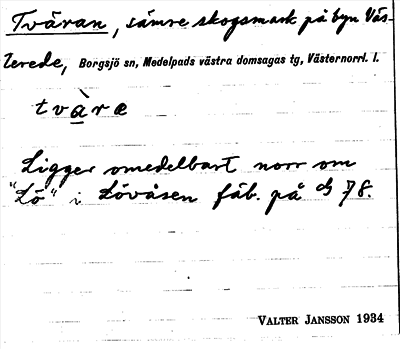 Tväran, sämre skogsmark på byn Väs-
terede, Borgsjö sn, Medelpads västra domsagas tg, Västernorrl. l.
tvàræ
Ligger omedelbart norr om
"Lö" i Lövåsen fäb. på 78.
VALTER JANSSON 1934